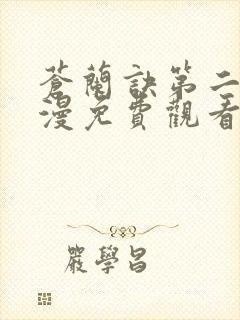 蒼蘭訣第二
漫免費觀看
嚴學昌